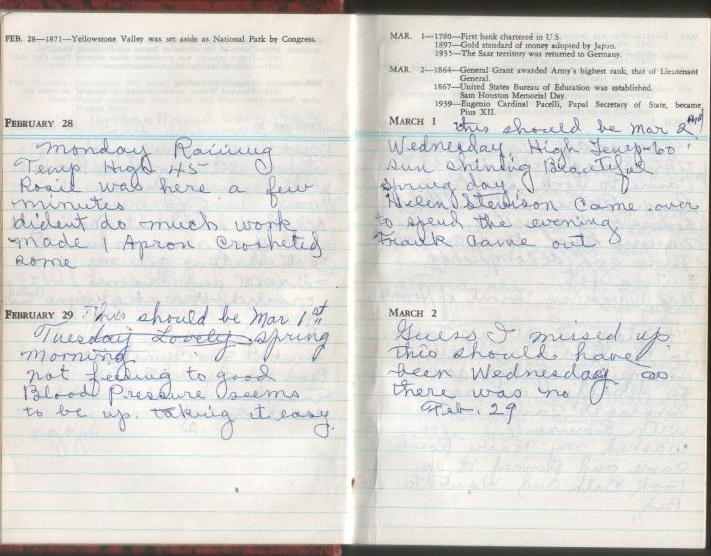 FEB. 28—1871—Yellowstone Valley was set aside as National Park by Congress.
FEBRUARY 28
Monday Raining
Temp High 45
Rosie was here a few
minutes
dident do much work
made 1 Apron Crosheted
some
FEBRUARY 29 This should be Mar 1st
Tuesday Lovely spring
morning
not feeling to good
Blood Pressure seems
to be up. taking it easy.
MAR. 1—1780—First bank chartered in U.S.
1897—Gold standard of money adopted by Japan.
1935—The Saar territory was returned to Germany.
MAR. 2—1864—General Grant awarded Army's highest rank, that of Lieutenant
General.
1867—United States Bureau of Education was established.
Sam Houston Memorial Day.
1939—Eugenio Cardinal Pacelli, Papal Secretary of State, became
Pius XII.
MARCH 1 this should be Mar 2
Wednesday, High Temp-60
sun shining Beautiful
spring day
Helen Stenison came over
to spend the evening
Frank came out
MARCH 2
Guess I mised up
this should have
been Wednesday as
there was no
Feb. 29